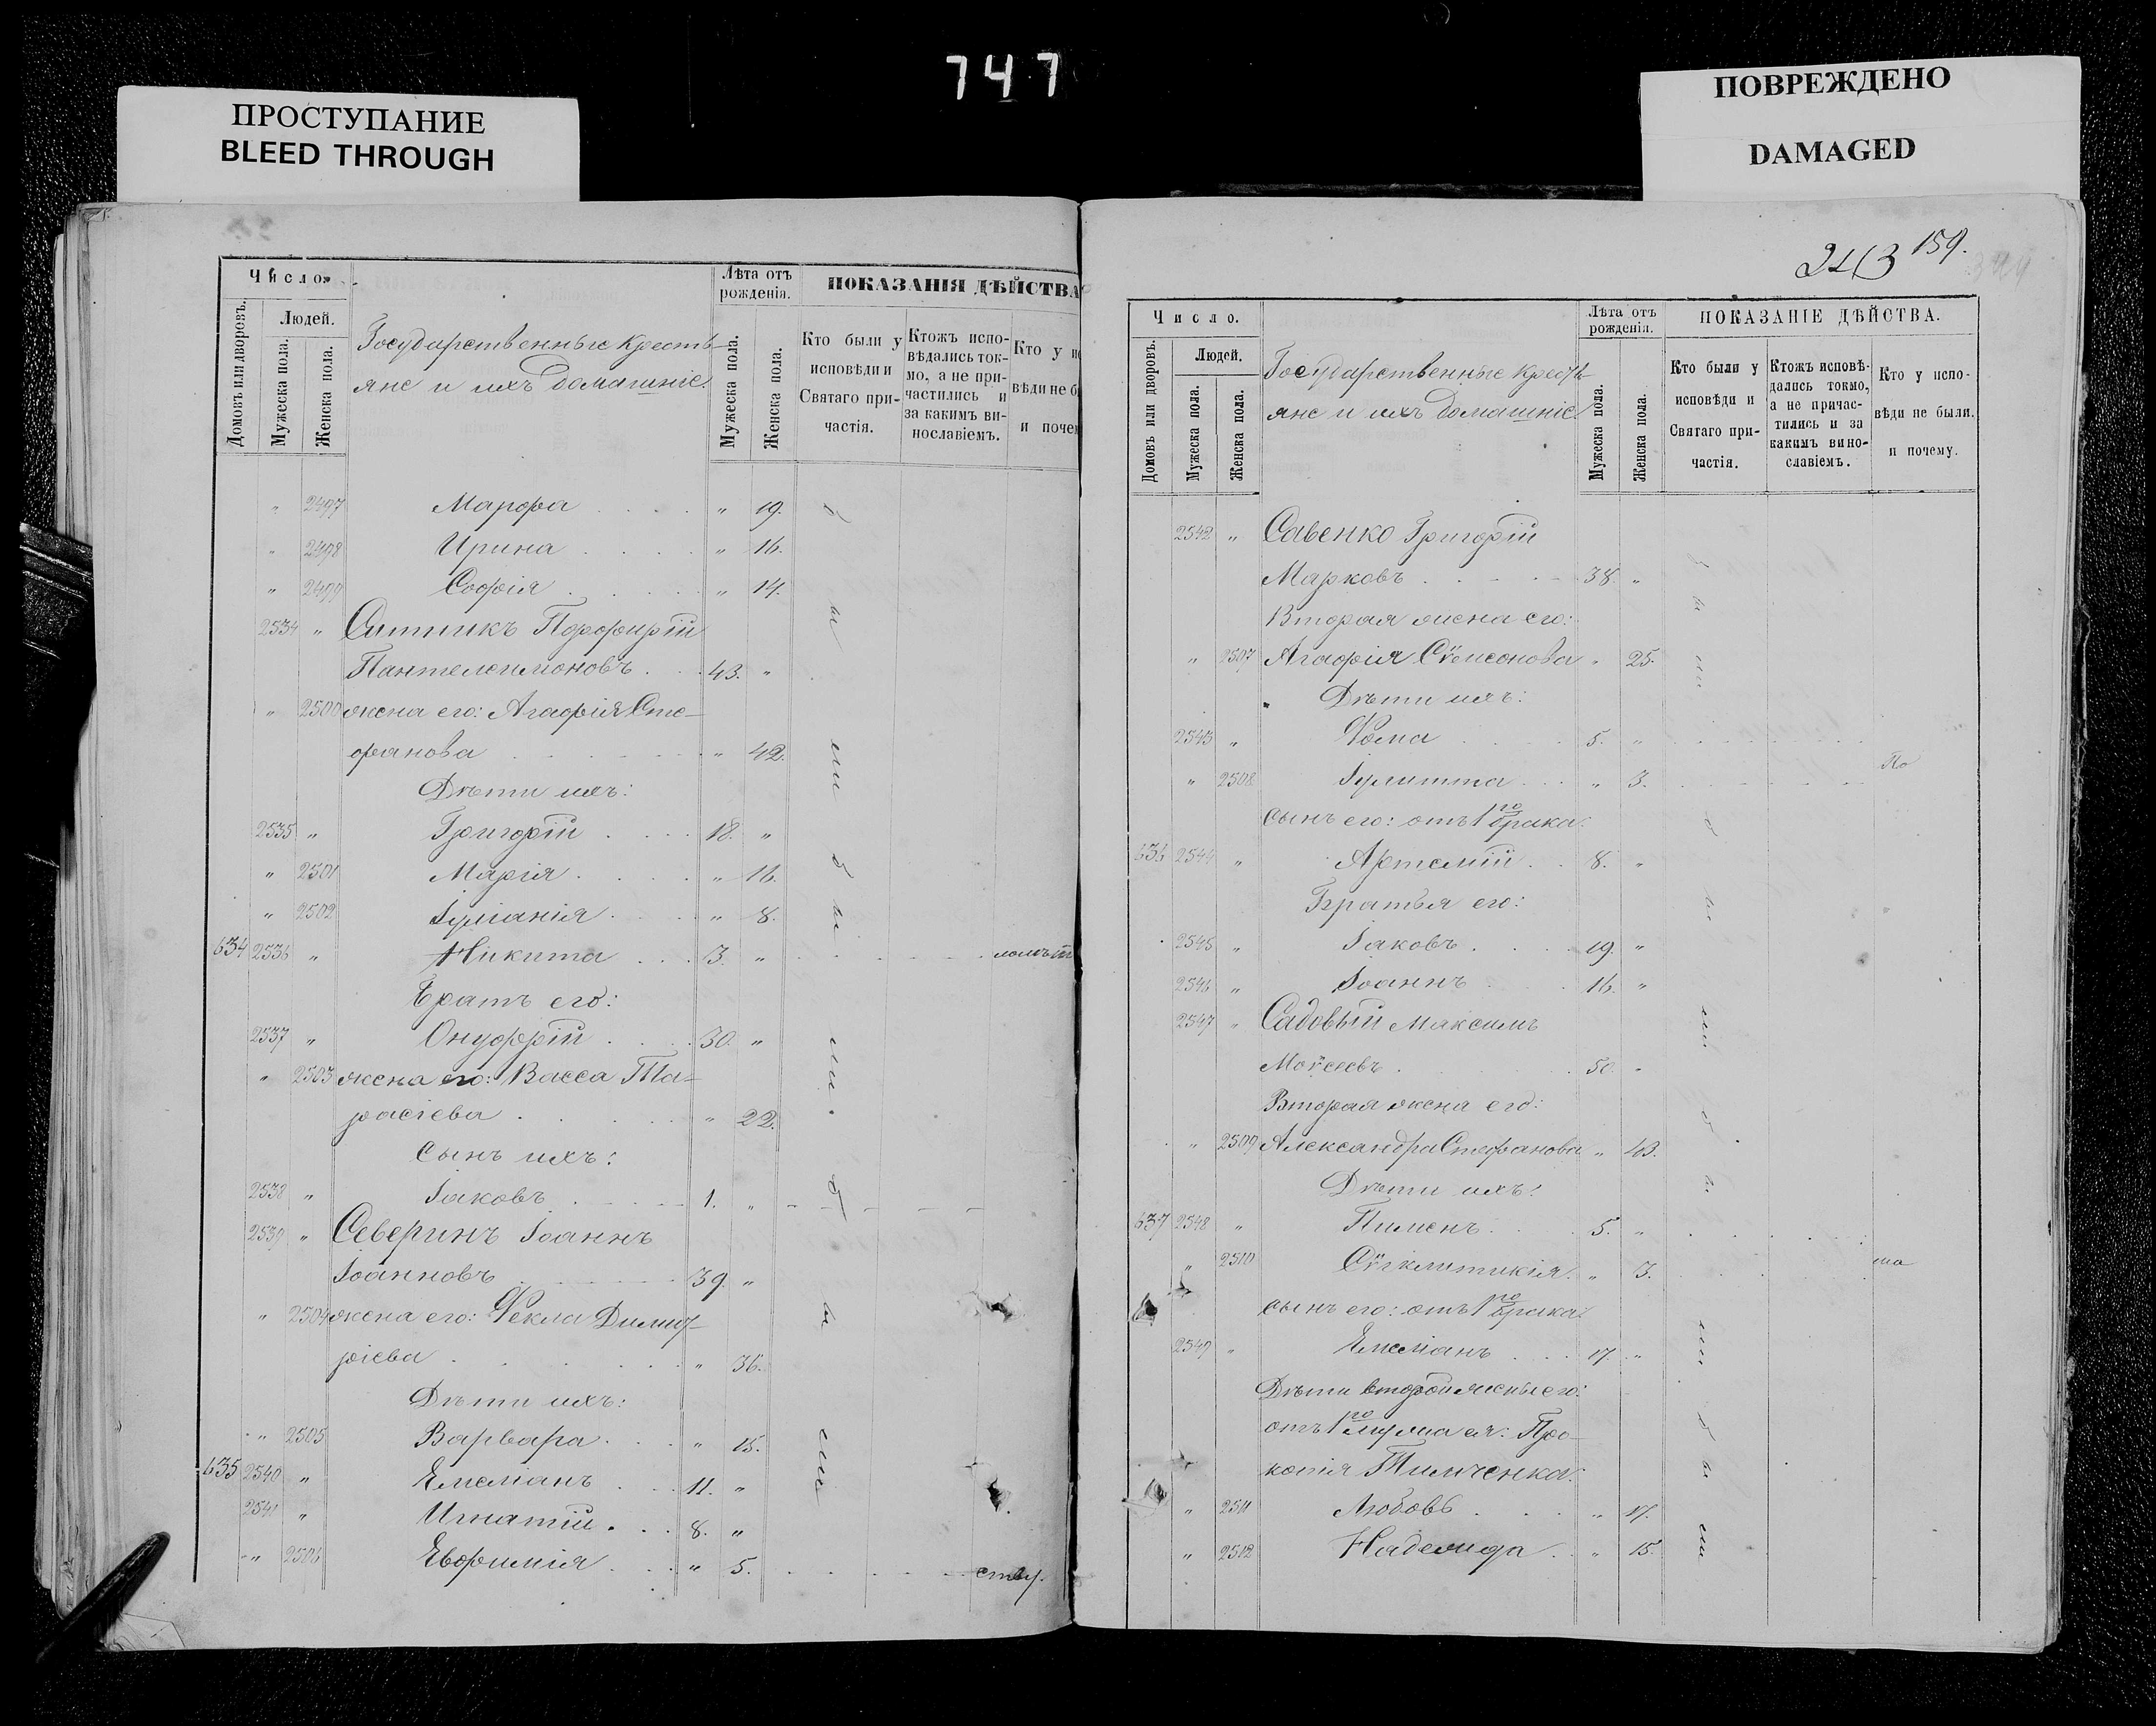 747
ПРОСТУПАНИЕ
BLEED THROUGH
ПОВРЕЖДЕНО
DAMAGED
Число.
Лѣта отъ рожденія.
ПОКАЗАНІЯ ДѢЙСТВА
Домовъ или дворовъ.
Людей.
Мужеска пола.
Женска пола.
Государственные кресть-
яне и ихъ домашніе.
Мужеска пола.
Женска пола.
Кто были у исповѣди и Святаго при-частія.
Ктожъ испо-вѣдались ток-мо, а не при-частились и за какимъ ви-нославіемъ.
Кто у ис
вѣди не б
и почем
" 2497 Марѳа " 19. б
" 2498 Ирина " 16.
" 2499 Софія " 14.
2534 " Ситникъ Порфирій ы
Пантелеимоновъ 43. "
" 2500 жена его: Агафія Сте-
фанова " 42. ли
Дѣти ихъ:
2535 " Григорій 18. "
" 2501 Марія " 16. б
" 2502 Іуліанія " 8. ы
634 2536 " Никита 3. " малолѣт
Братъ его:
2537 " Онуфрій 30. " ли
" 2503 жена его: Васса Та-
расіева " 22.
Сынъ ихъ:
2538 " Іаковъ 1. " б
2539 " Северинъ Іоаннъ
Іоанновъ 39. "
" 2504 жена его: Ѳекла Дими- ы
рієва " 36.
Дѣти ихъ:
" 2505 Варвара " 15.
635 2540 " Емеліанъ 11. " ли
2541 " Игнатій 8. "
" 2506 Евфимія " 5. ству.
243 159.
Число.
Лѣта отъ рожденія.
ПОКАЗАНІЕ ДѢЙСТВА.
Домовъ или дворовъ.
Людей.
Мужеска пола.
Женска пола.
Государственные кресть-
яне и ихъ домашніе.
Мужеска пола.
Женска пола.
Кто были у исповѣди и Святаго при-частія.
Ктожъ исповѣ-дались токмо, а не причас-тились и за какимъ вино-славіемъ.
Кто у испо-вѣди не были. и почему.
2542 " Савенко Григорій
Марковъ 38. " б ы
Вторая жена его:
" 2507 Агафія Сѵмеонова " 25. ли
Дѣти ихъ:
2543 " Ѳома 5. "
" 2508 Іулитта " 3. По
сынъ его: отъ 1го брака: б
636 2544 " Артемій 8. "
Братья его: ы
2545 " Іаковъ 19. "
2546 " Іоаннъ 16. "
2547 " Садовый Максимъ ли
Моѵсеевъ 50. "
Вторая жена его:
" 2509 Александра Стефанова " 43. б
Дѣти ихъ: ы
637 2548 " Пименъ 5. "
" 2510 Сѵгклитикія " 3. ма
сынъ его: отъ 1го брака:
2549 " Емеліанъ 17. " ли
Дѣти второй жены его:
отъ 1го мужа ея: Про- б
копія Тимченка: ы
" 2511 Любовь " 17.
" 2512 Надежда " 15. ли